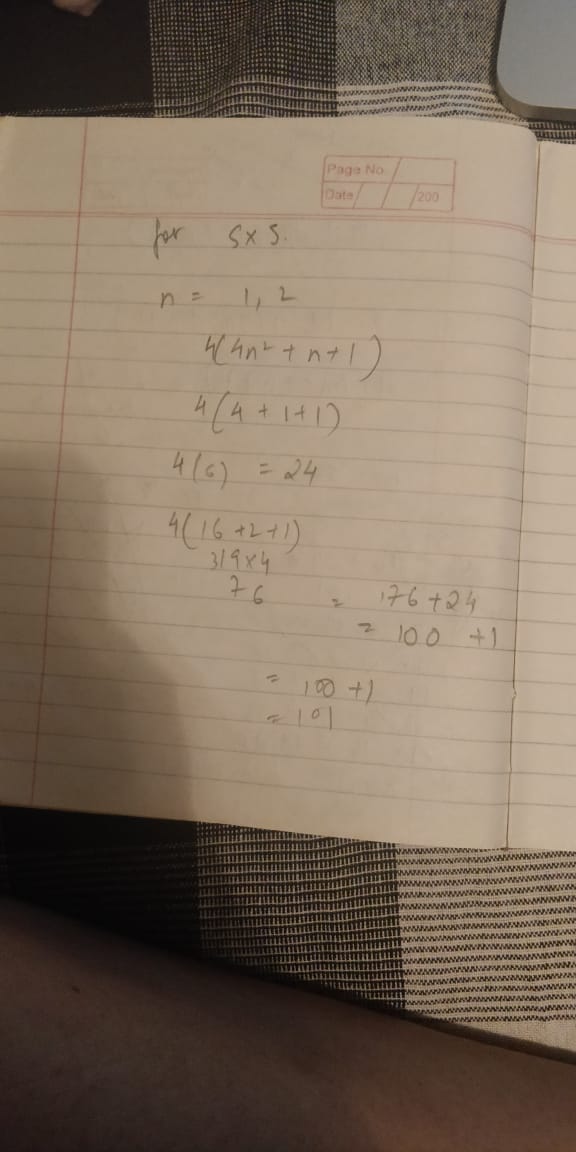 Page No.
Date / / 200
for 5x5.
n = 1, 2
4(4n² + n+1)
4(4 + 1+1)
4(6) = 24
4(16 +2+1)
319x4
76 = 76 +24
= 100 +1
= 100 +1
= 101